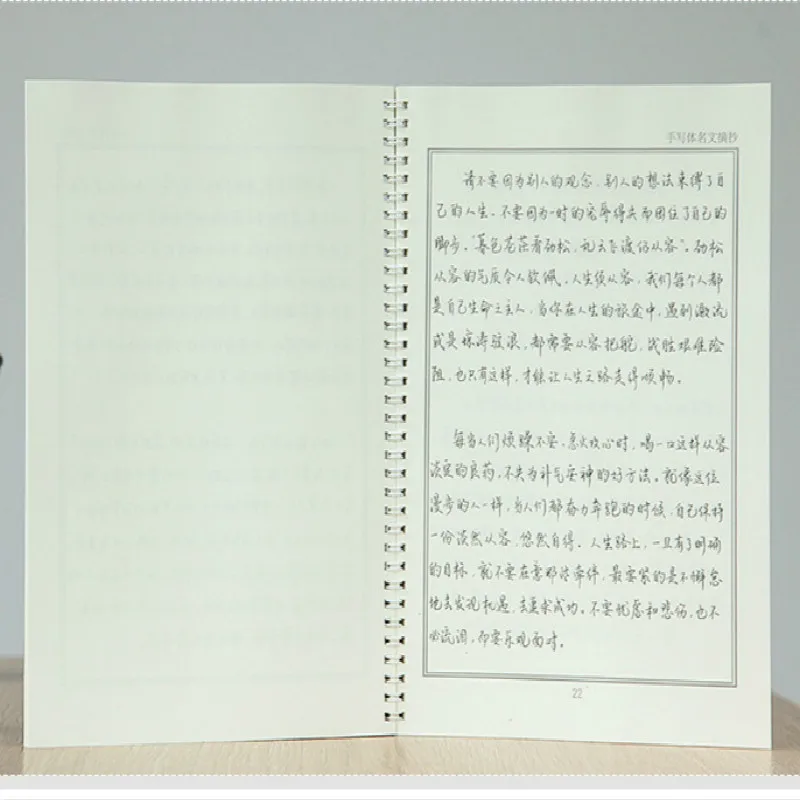 手写体名文摘抄
请不要因为别人的观念,别人的想法束缚了自
己的人生。不要因为一时的宠辱得失而困住了自己的
脚步。"暮色苍茫看劲松,乱云飞渡仍从容"。劲松
从容的气质令人钦佩,人生须从容,我们每个人都
是自己生命之主人,当你在人生的旅途中,遇到激流
或是惊涛骇浪,都需要从容把舵,战胜艰难险
阻,也只有这样,才能让人生之路走得顺畅。
每当人们烦躁不安、急火攻心时,喝一口这样从容
淡定的良药,不失为补气安神的好方法。就像这位
漫步的人一样,当人们都奋力奔跑的时候,自己保持
一份淡然从容,悠然自得。人生路上,一旦有了明确
的目标,就不要在意那许牵绊,最要紧的是不懈怠
地去发现机遇,去追求成功。不要忧虑和悲伤,也不
必流泪,而要乐观面对。
22